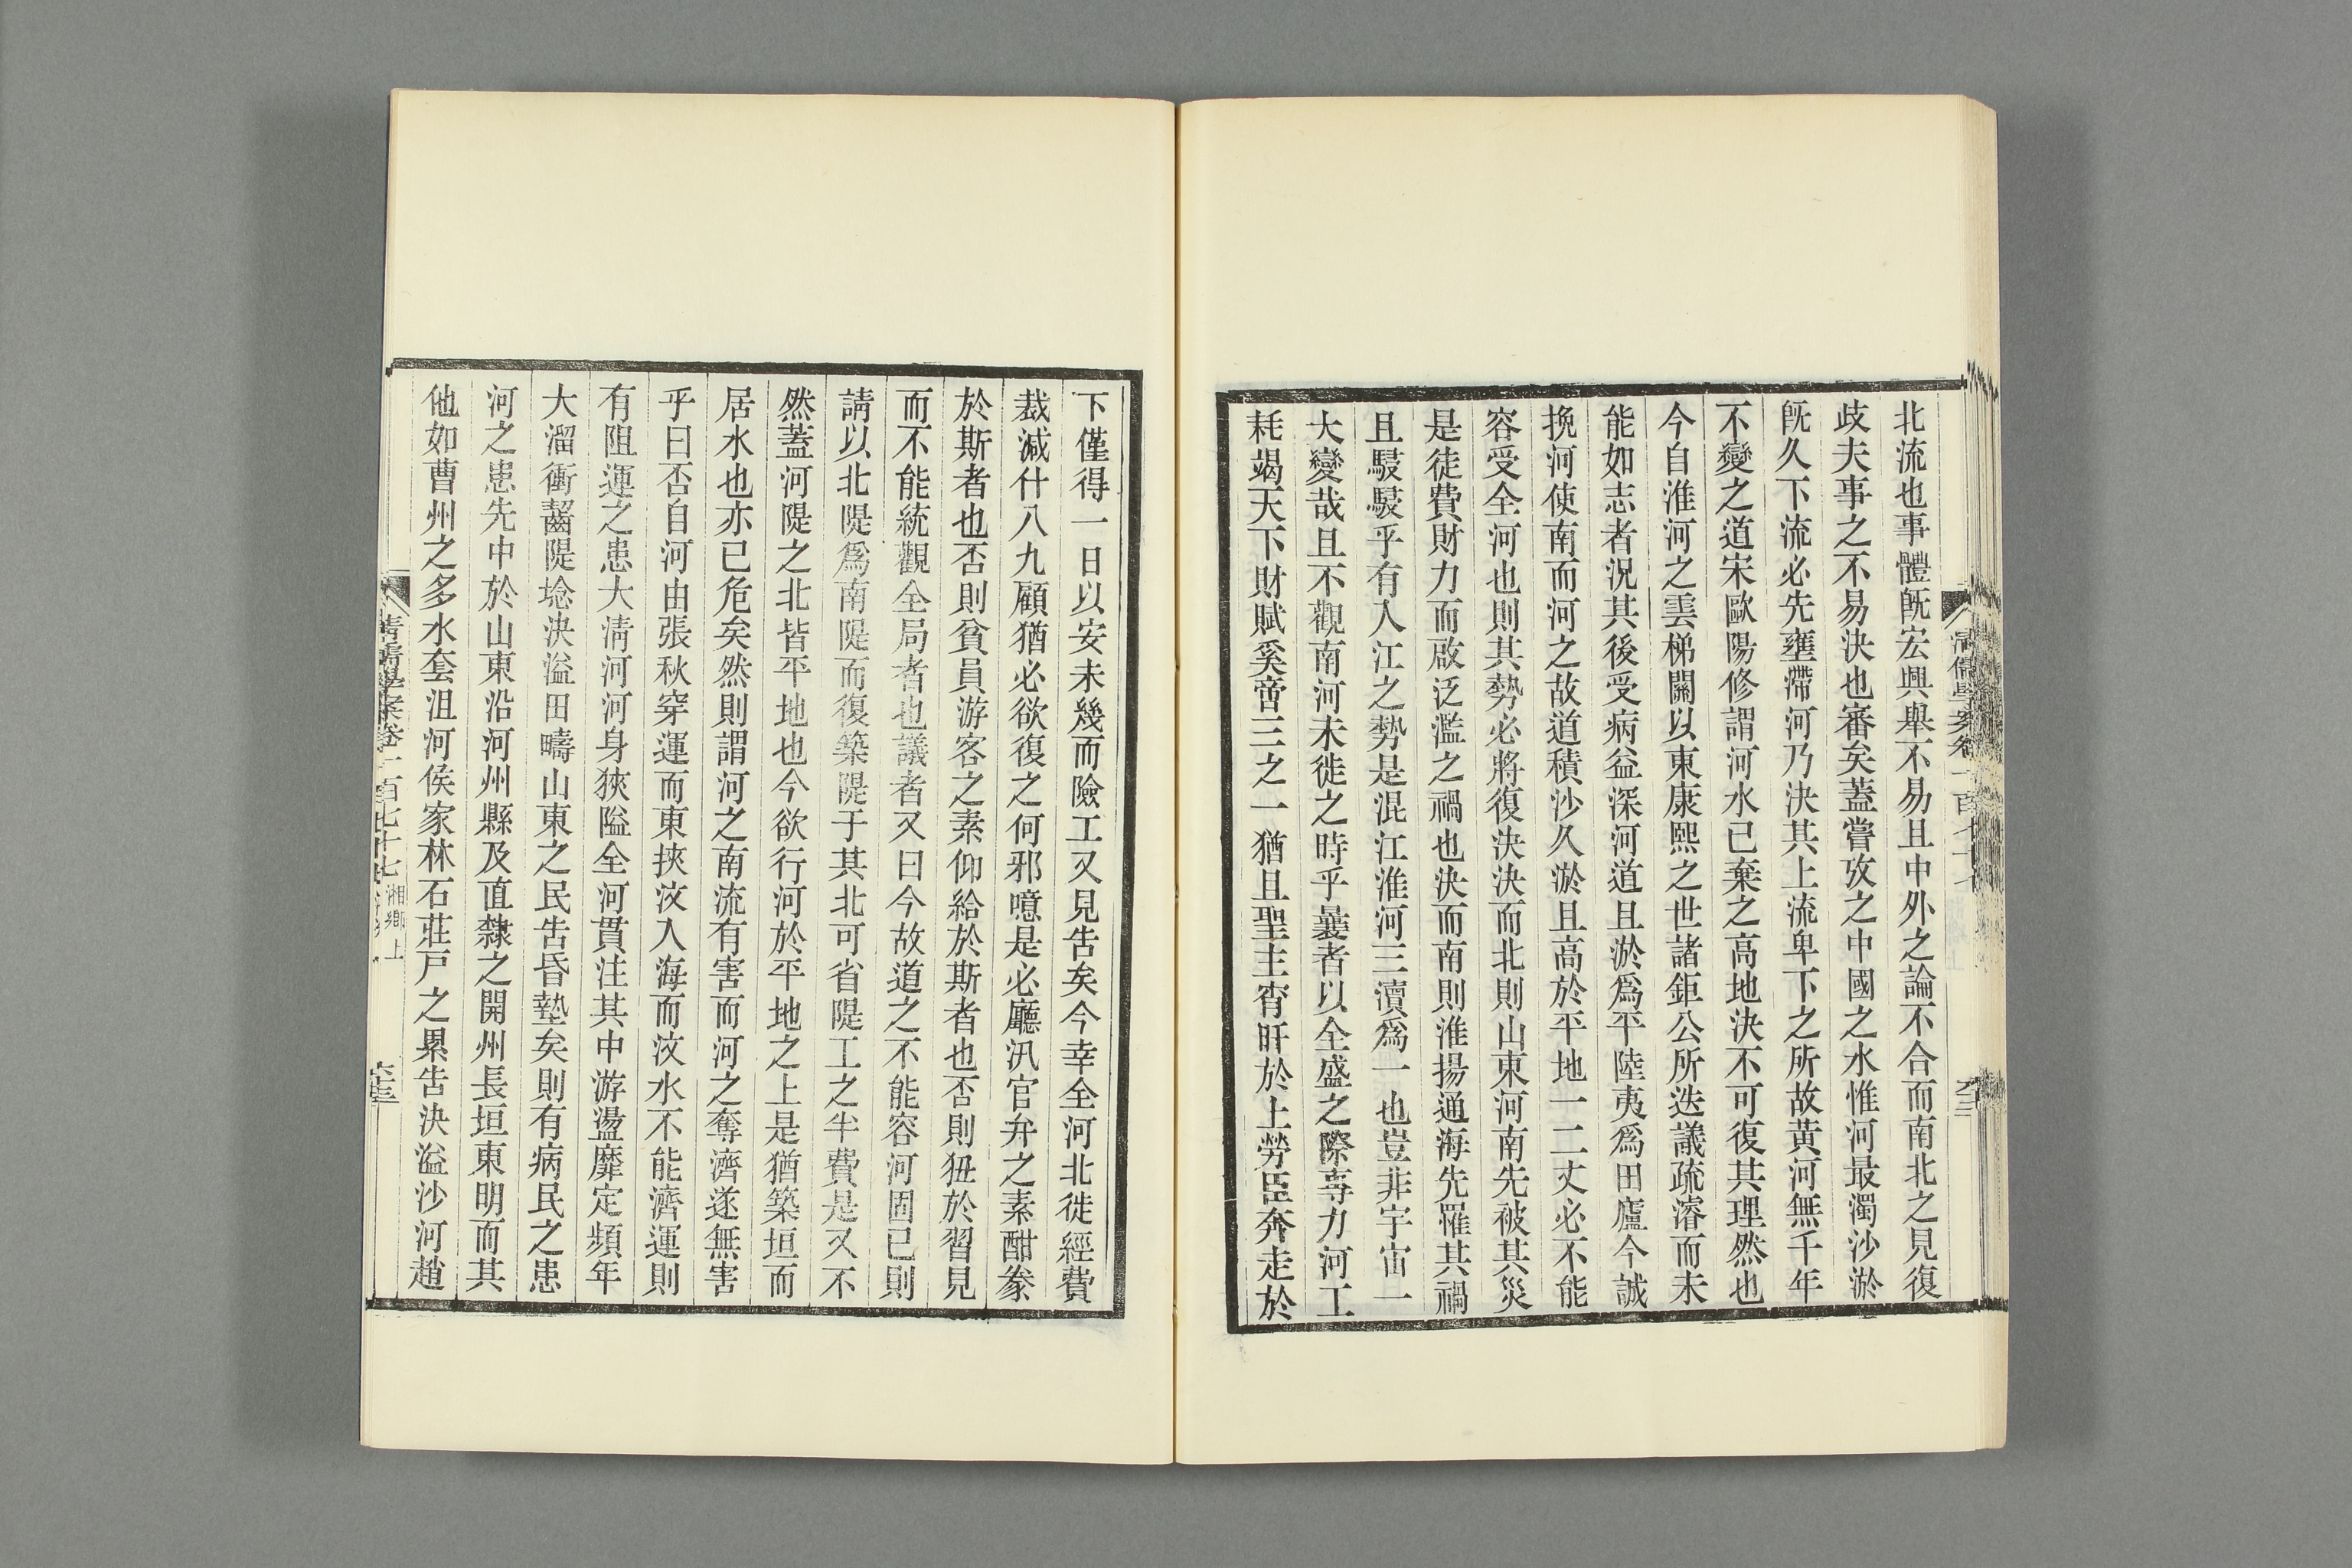 北流也事體旣宏興舉不易且中外之論不合而南北之見復
歧夫事之不易決也審矣蓋嘗攷之中國之水惟河最濁沙淤
旣久下流必先壅滯河乃決其上流卑下之所故黃河無千年
不變之道宋歐陽修謂河水已棄之高地決不可復其理然也
今自淮河之雲梯關以東康熙之世諸鉅公所迭議疏濬而未
能如志者況其後受病益深河道且淤爲平陸夷爲田廬今誠
挽河使南而河之故道積沙久淤且高於平地一二丈必不能
容受全河也則其勢必將復決決而北則山東河南先被其災
是徒費財力而啟泛濫之禍也決而南則淮揚通海先罹其禍
且駸駸乎有入江之勢是混江淮河三瀆爲一也豈非宇宙一
大變哉且不觀南河未徙之時乎曩者以全盛之際專力河工
耗竭天下財賦奚啻三之一猶且聖主宵旰於上勞臣奔走於
下僅得一日以安未幾而險工又見告矣今幸全河北徙經費
裁減什八九顧猶必欲復之何邪噫是必廳汛官弁之素酣豢
於斯者也否則貧員游客之素仰給於斯者也否則狃於習見
而不能統觀全局者也議者又曰今故道之不能容河固已則
請以北隄爲南隄而復築隄于其北可省隄工之半費是又不
然蓋河隄之北皆平地也今欲行河於平地之上是猶築垣而
居水也亦已危矣然則謂河之南流有害而河之奪濟遂無害
乎曰否自河由張秋穿運而東挾汶入海而汶水不能濟運則
有阻運之患大淸河河身狹隘全河貫注其中游盪靡定頻年
大溜衝齧隄埝決溢田疇山東之民告昏墊矣則有病民之患
河之患先中於山東沿河州縣及直隸之開州長垣東明而其
他如曹州之多水套沮河侯家林石莊戸之累告決溢沙河趙
清儒學案卷一百七十七 湘鄉上 六十三